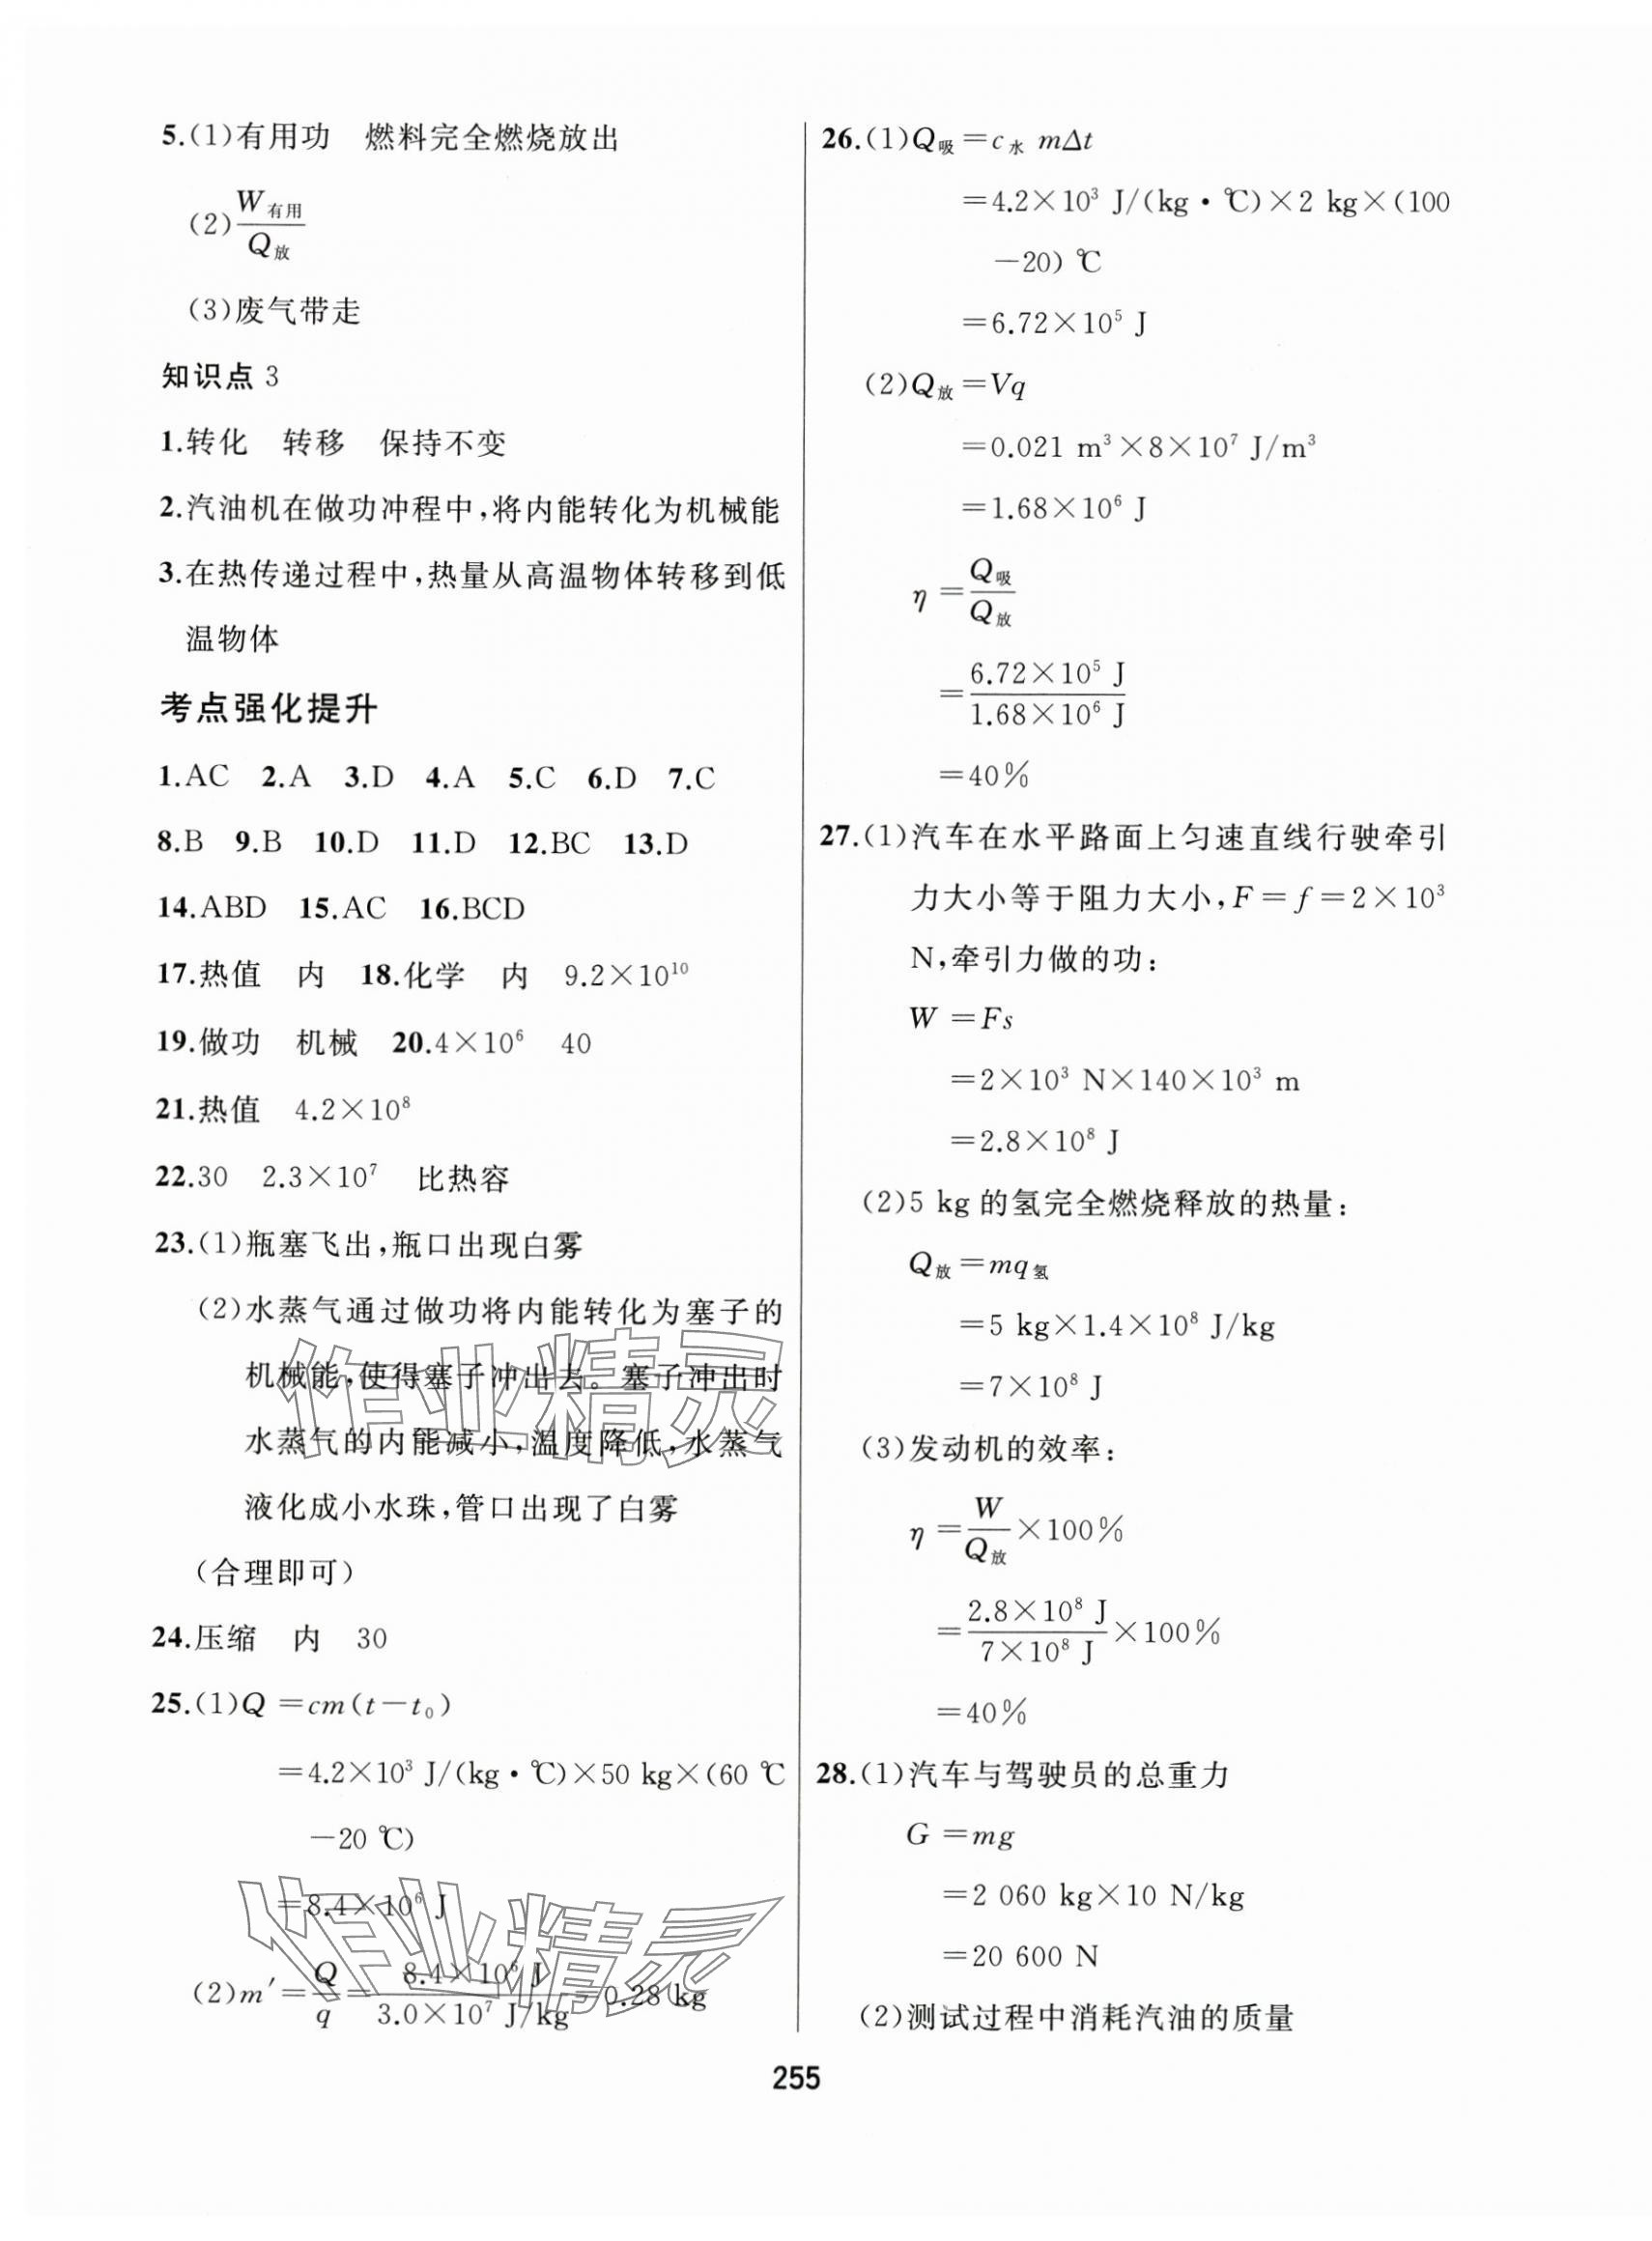 5.(1)有用功　燃料完全燃烧放出
(2)W有用/Q放
(3)废气带走
知识点 3
1.转化　转移　保持不变
2.汽油机在做功冲程中,将内能转化为机械能
3.在热传递过程中,热量从高温物体转移到低
温物体
考点强化提升
1.AC　2.A　3.D　4.A　5.C　6.D　7.C
8.B　9.B　10.D　11.D　12.BC　13.D
14.ABD　15.AC　16.BCD
17.热值　内　18.化学　内　9.2×10¹⁰
19.做功　机械　20.4×10⁶　40
21.热值　4.2×10⁸
22.30　2.3×10⁷　比热容
23.(1)瓶塞飞出,瓶口出现白雾
(2)水蒸气通过做功将内能转化为塞子的
机械能,使得塞子冲出去。塞子冲出时
水蒸气的内能减小,温度降低,水蒸气
液化成小水珠,管口出现了白雾
(合理即可)
24.压缩　内　30
25.(1)Q=cm(t-t₀)
=4.2×10³ J/(kg·℃)×50 kg×(60 ℃
-20 ℃)
=8.4×10⁶ J
(2)m′=Q/q=8.4×10⁶ J/3.0×10⁷ J/kg=0.28 kg
26.(1)Q吸=c水 mΔt
=4.2×10³ J/(kg·℃)×2 kg×(100
-20) ℃
=6.72×10⁵ J
(2)Q放=Vq
=0.021 m³×8×10⁷ J/m³
=1.68×10⁶ J
η=Q吸/Q放
=6.72×10⁵ J/1.68×10⁶ J
=40%
27.(1)汽车在水平路面上匀速直线行驶牵引
力大小等于阻力大小,F=f=2×10³
N,牵引力做的功:
W=Fs
=2×10³ N×140×10³ m
=2.8×10⁸ J
(2)5 kg的氢完全燃烧释放的热量:
Q放=mq氢
=5 kg×1.4×10⁸ J/kg
=7×10⁸ J
(3)发动机的效率:
η=W/Q放×100%
=2.8×10⁸ J/7×10⁸ J×100%
=40%
28.(1)汽车与驾驶员的总重力
G=mg
=2 060 kg×10 N/kg
=20 600 N
(2)测试过程中消耗汽油的质量
255
作业精灵
作业精灵